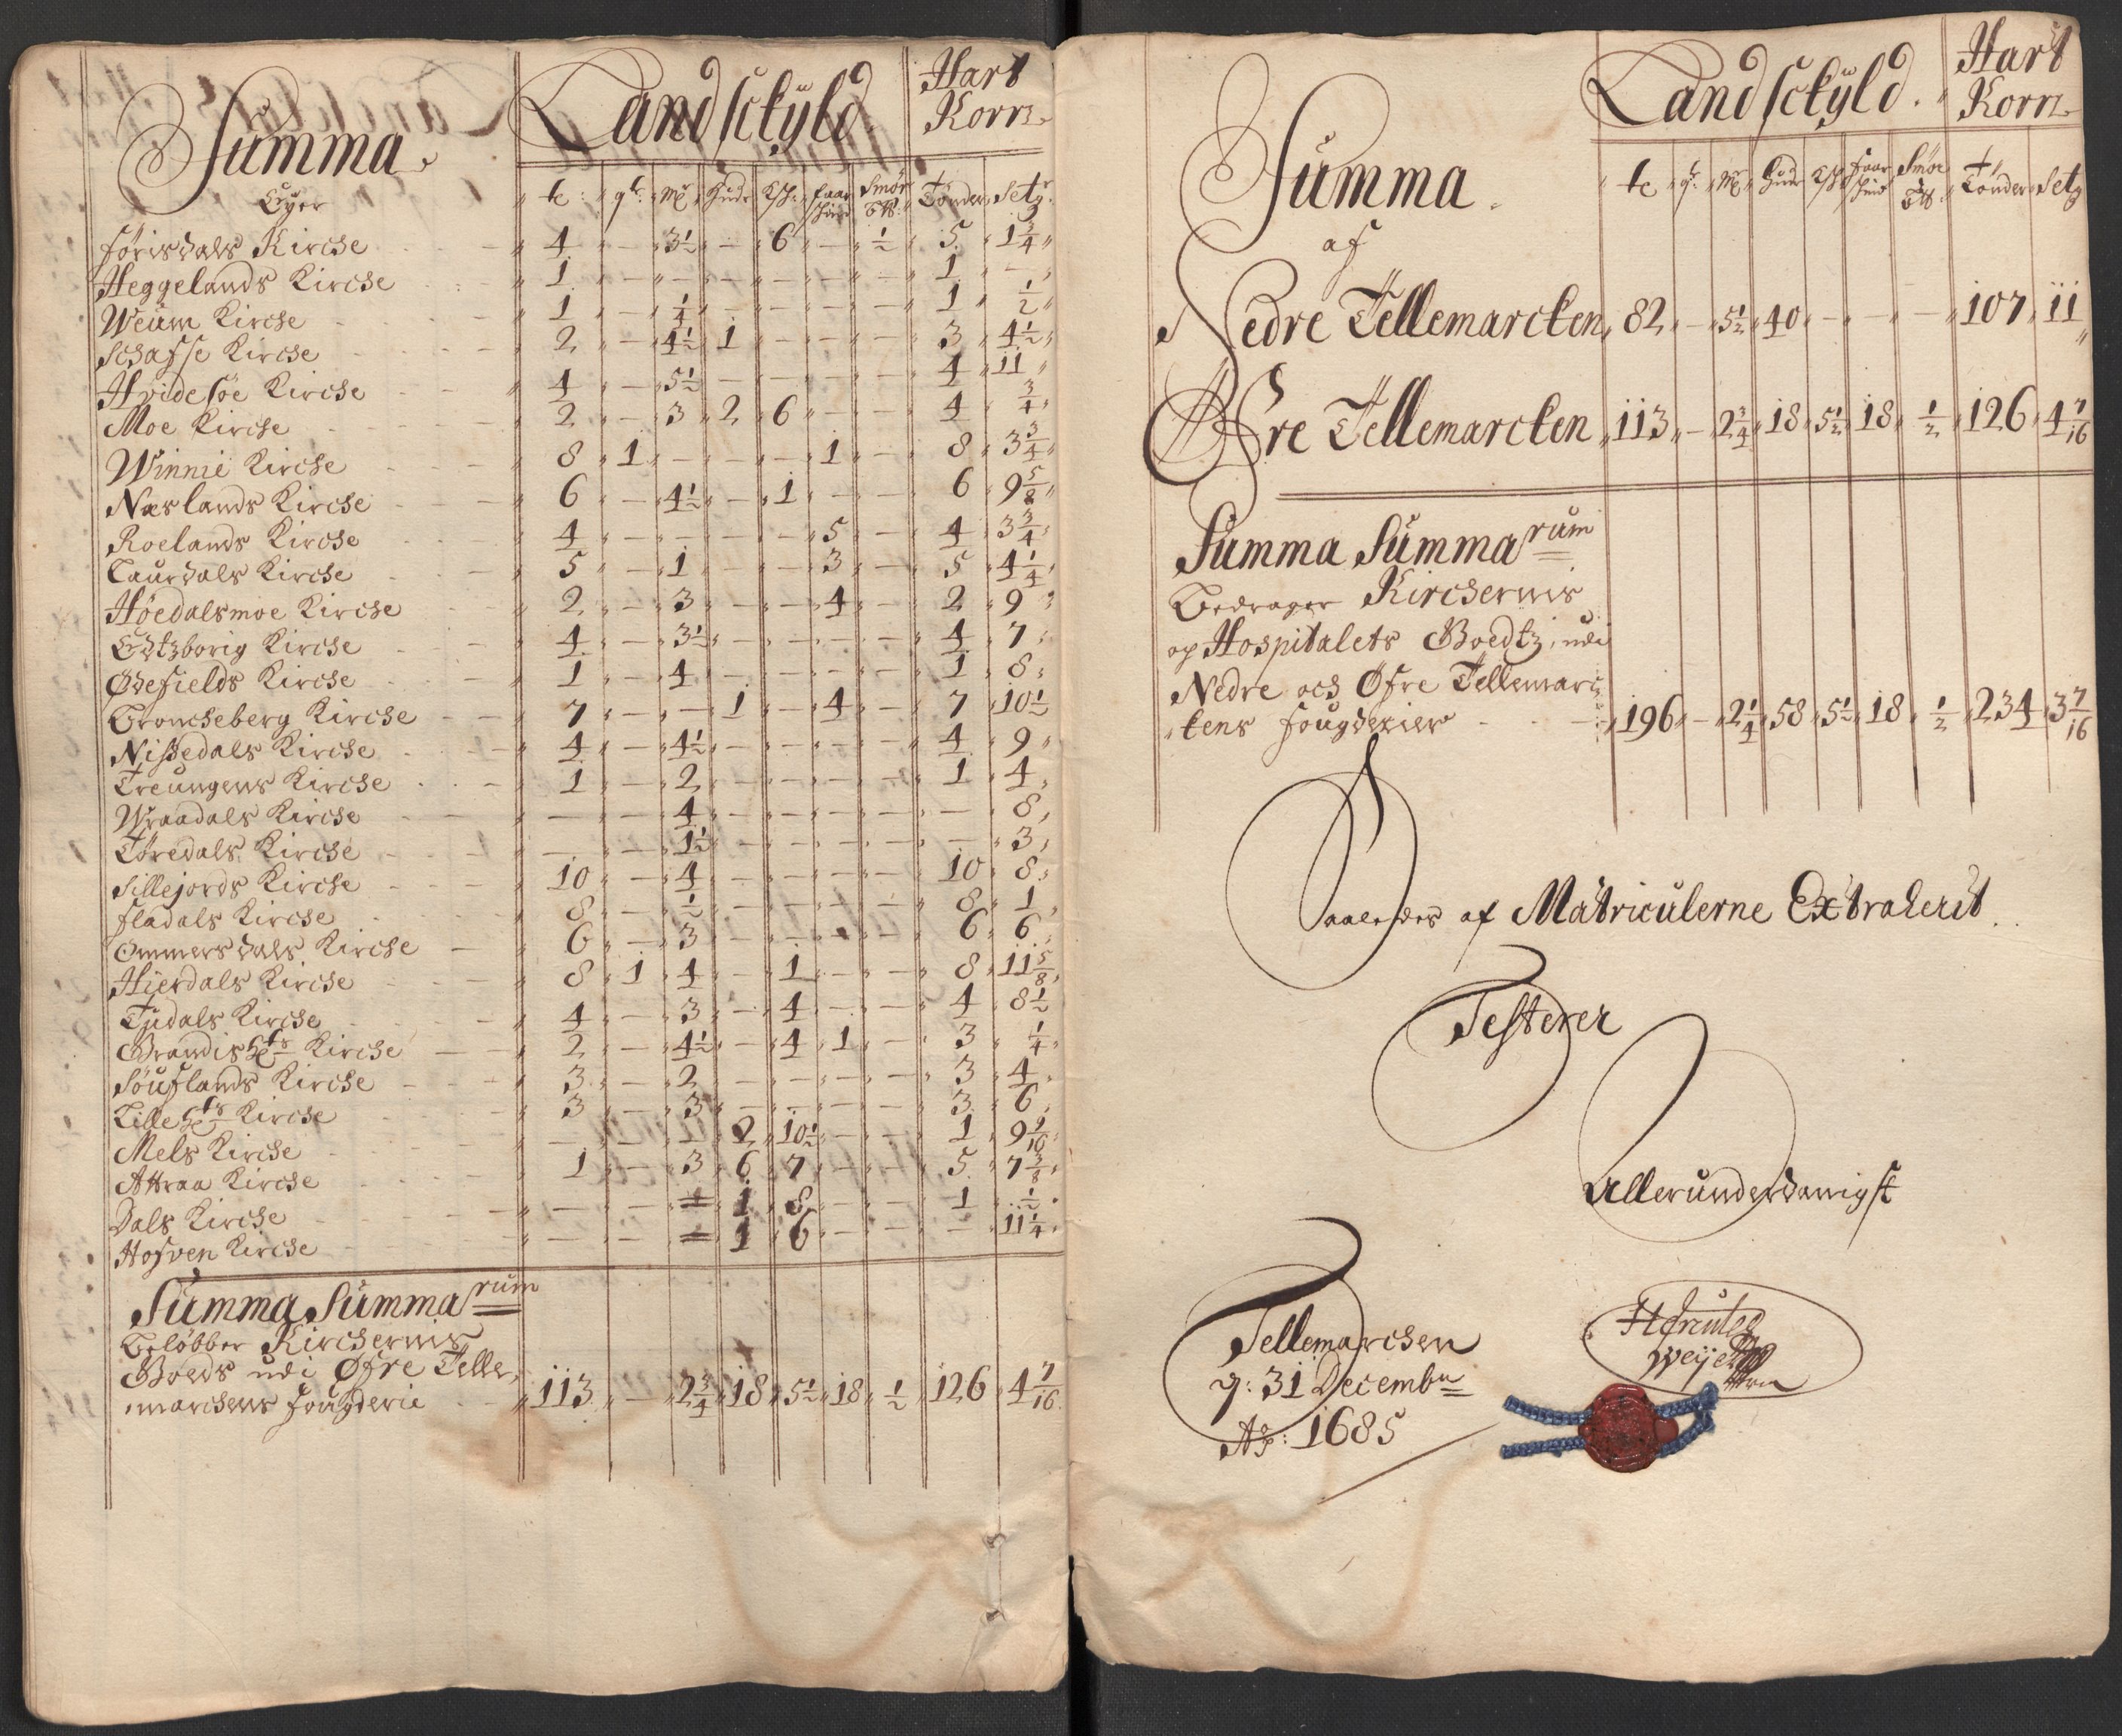 Summa Landschÿld Hart
Korn
Eyer
tʒ: qt: Mꝉ Hude Kß: faar skind Smör BꝐ: Tönder Setʒr
Förisdals Kirche 4 — 3½ — 6 — ½ 5 1¾
Heggelands Kirche 1 — — — — — — 1 —
Weüm Kirche 1 — ¼ — — — — 1 ½
Schafse Kirche 2 — 4½ 1 — — — 3 4½
Hvidesöe Kirche 4 — 5½ — — — — 4 11
Moe Kirche 2 — 3 2 6 — — 4 ¾
Winnie Kirche 8 1 — — — 1 — 8 3¾
Næslands Kirche 6 — 4½ — 1 — — 6 9⅝
Roelands Kirche 4 — — — — 5 — 4 3¾
Laurdals Kirche 5 — 1 — — 3 — 5 4¼
Höedalsmoe Kirche 2 — 3 — — 4 — 2 9
Eitzborig Kirche 4 — 3½ — — — — 4 7
Øsefields Kirche 1 — 4 — — — — 1 8
Broncheberg Kirche 7 — — 1 — 4 — 7 10½
Nissedals Kirche 4 — 4½ — — — — 4 9
Treungens Kirche 1 — 2 — — — — 1 4
Wraadals Kirche — — 4 — — — — — 8
Töredals Kirche — — 1½ — — — — — 3
Sillejords Kirche 10 — 4 — — — — 10 8
Fladals Kirche 8 — ½ — — — — 8 1
Ommersdals Kirche 6 — 3 — — — — 6 6
Hierdals Kirche 8 1 4 — 1 — — 8 11⅝
Tudals Kirche 4 — 3 — 4 — — 4 8½
Grandishꝭ Kirche 2 — 4½ — 4 1 — 3 ¼
Söuflands Kirche 3 — 2 — — — — 3 4
Lillehꝭ Kirche 3 — 3 — — — — 3 6
Mels Kirche — — — 2 10½ — — 1 9 1/16
Attraa Kirche 1 — 3 6 7 — — 5 7⅜
Dals Kirche — — — 1 8 — — 1 ½
Hofven Kirche — — — 1 6 — — — 11¼
Summa Summarum
Belöbber Kirchernis
Goeds udi Øfre Telle
marchens fougderie 113 — 2¾ 18 5½ 18 ½ 126 4 7/16
Summa Landschÿld. Hart
Korn
tʒ qt: Mꝉ Hude Kß faar skind Smör BꝐ. Tönder Setʒ
af
Nedre Tellemarcken 82 — 5½ 40 — — — 107 11
Øfre Tellemarcken 113 — 2¾ 18 5½ 18 ½ 126 4 7/16
Summa Summarum
Bedrager Kirchernis
og Hospitalets Goedtz, udi
Nedre och Øfre Tellemarc
kens fougderier 196 — 2¼ 58 5½ 18 ½ 234 3 7/16
Saaledes af Matriculerne Extraherit.
Testerer
Allerunderdanigst
Tellemarchen
d: 31 Decembr
Ao: 1685